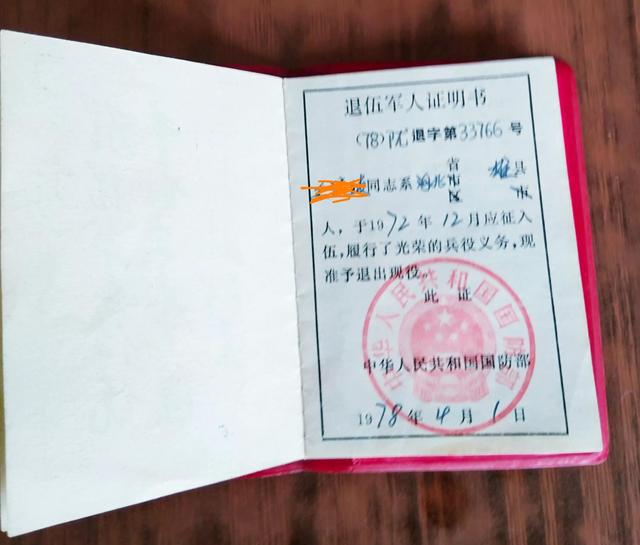 退伍军人证明书
(78)沈退字第33766号
同志系河北省 雄县
人，于1972年12月应征入
伍，履行了光荣的兵役义务，现
准予退出现役。
此证
中华人民共和国国防部
1978年4月1日
中华人民共和国国防部